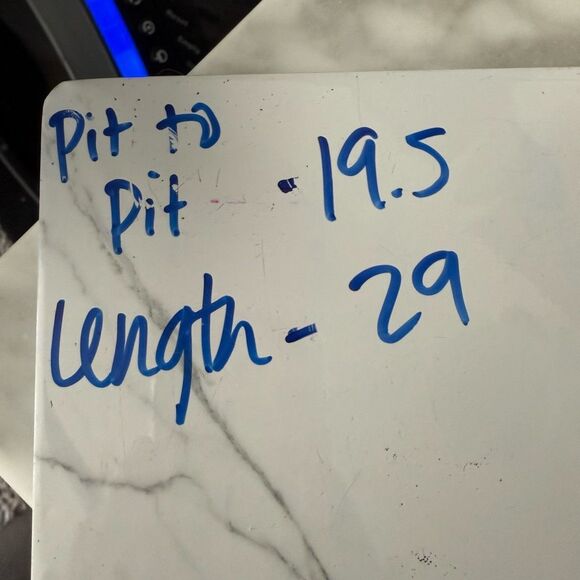 Pit to
Pit - 19.5
Length - 29